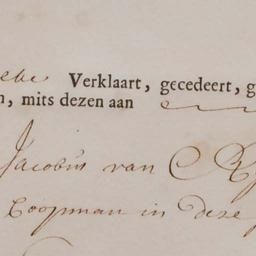 Verklaart, gecedeert, g
n, mits dezen aan
Jacobus van
Coopman in deze